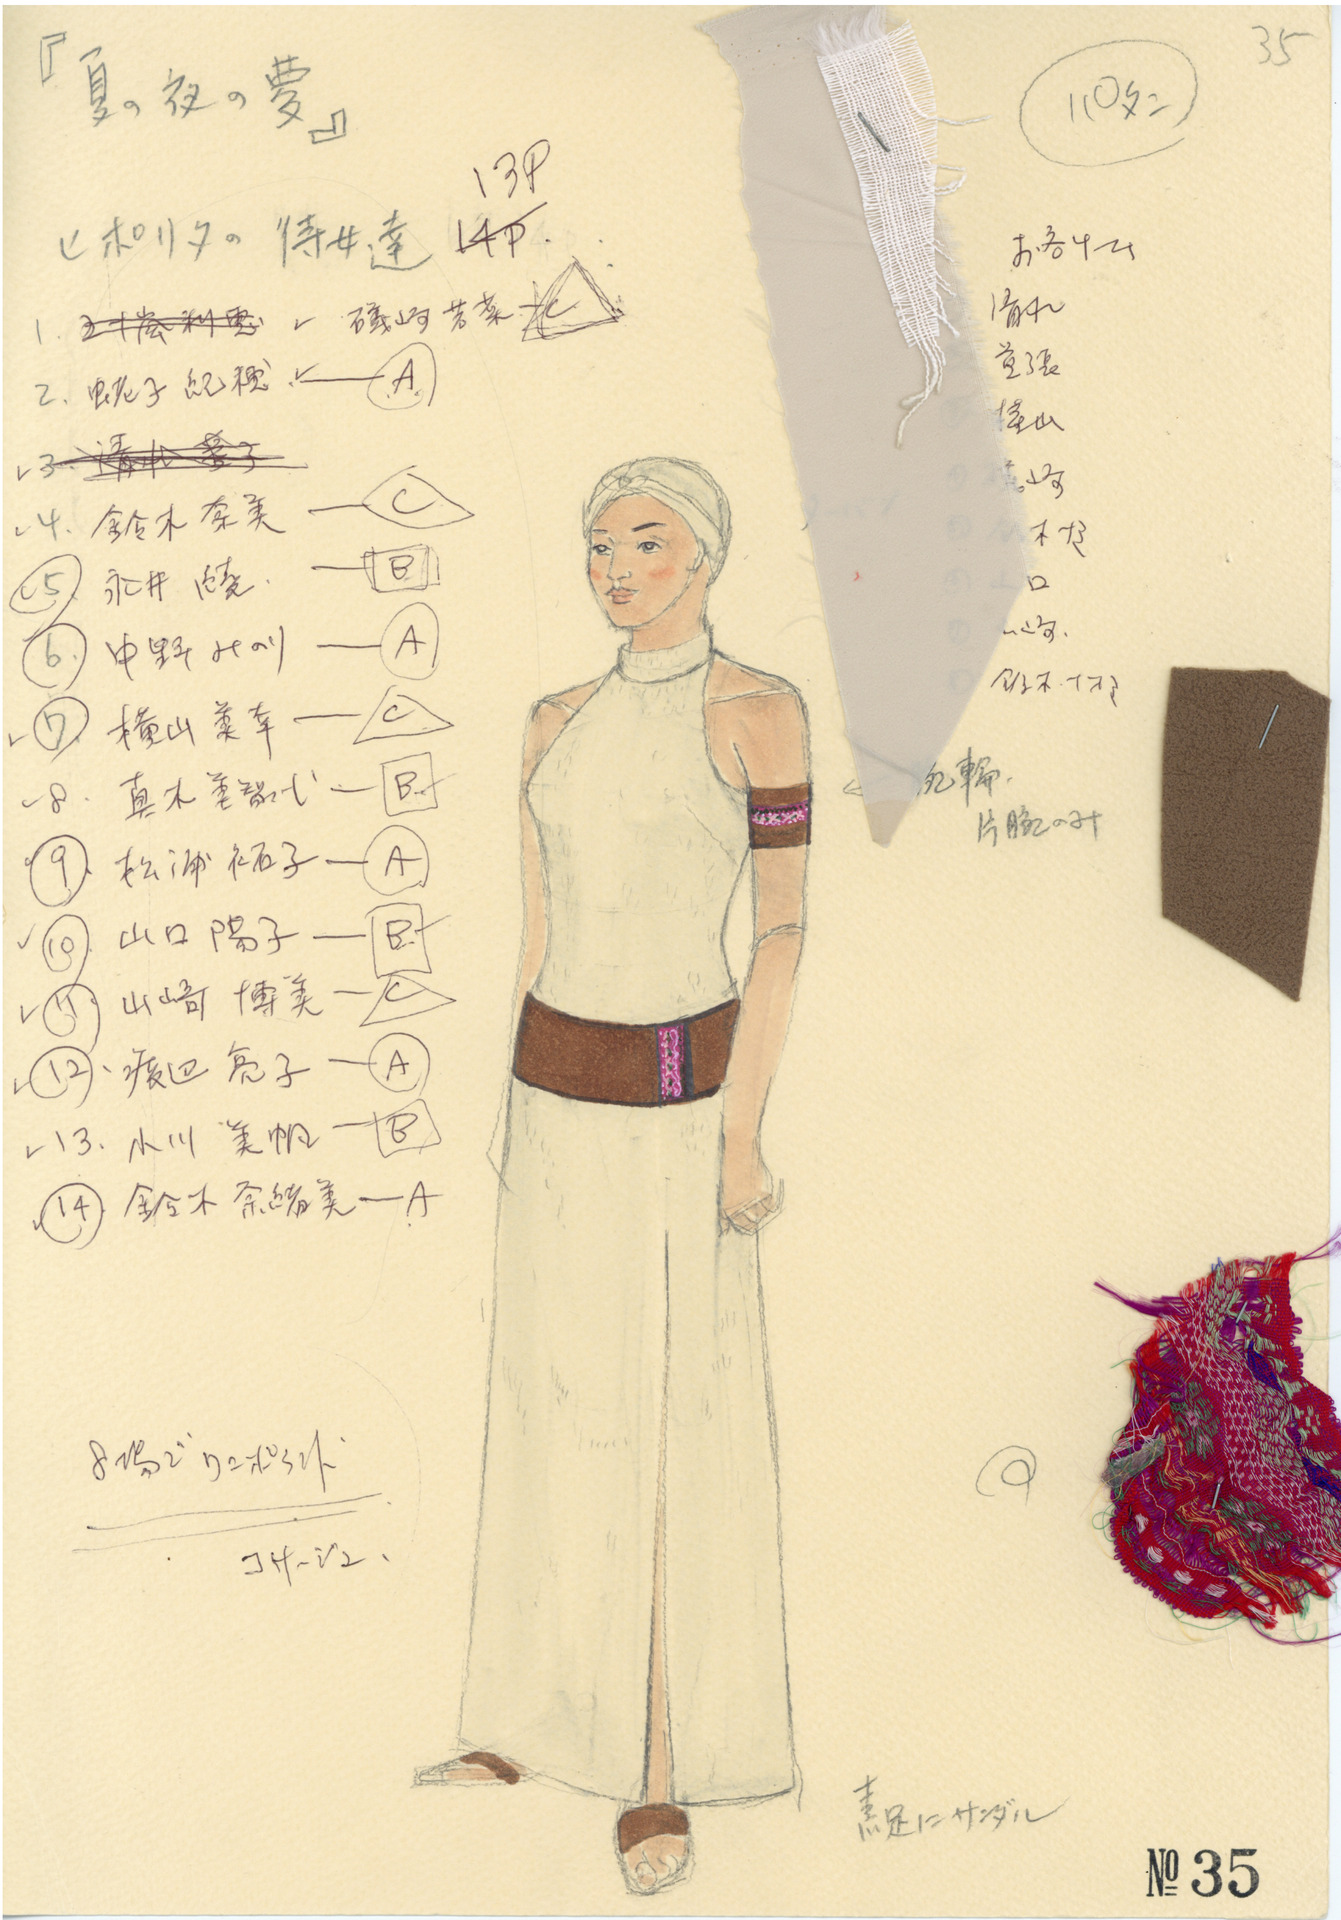 35
『夏の夜の夢』
110タン
13P
ヒポリタの侍女達 14P.
1. 五十嵐利恵 磯崎若菜 C
2. 蛯子紀穂 A
3. 清水
4. 鈴木奈美 C
5 永井 B
6. 中野みのり A
7 横山美幸 C
8. 真木美智代 B
9 松浦佑子 A
10 山口陽子 B
11 山崎博美 C
12 渡辺亮子 A
13. 小川美帆 B
14 鈴木奈緒美 A
清水
横山
崎
木
口
崎
鈴木
腕輪.
片腕のみ
8場でワンポイント
コサージュ.
素足にサンダル
№ 35